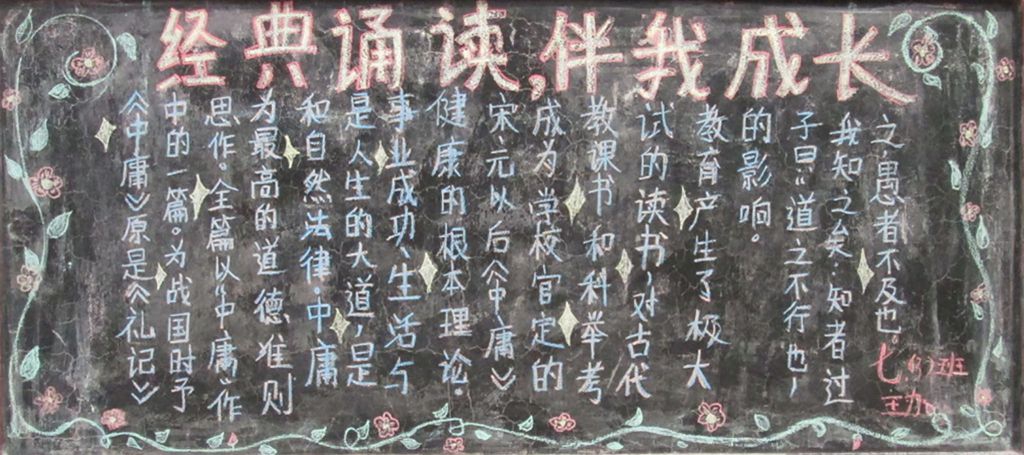 经典诵读,伴我成长
《中庸》原是《礼记》
中的一篇。为战国时予
思作。全篇以"中庸"作
为最高的道德准则
和自然法律.中庸
是人生的大道,是
事业成功、生活与
健康的根本理论.
宋元以后《中庸》
成为学校官定的
教课书和科举考
试的读书,对古代
教育产生了极大
的影响。
子曰:"道之不行也,
我知之矣:知者过
之愚者不及也。